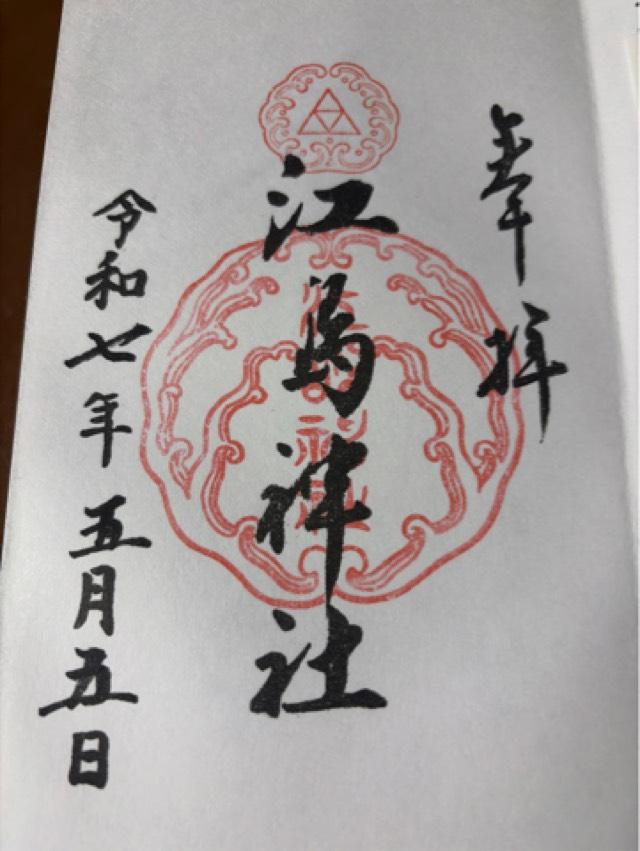 奉拝
江島神社
令和七年五月五日